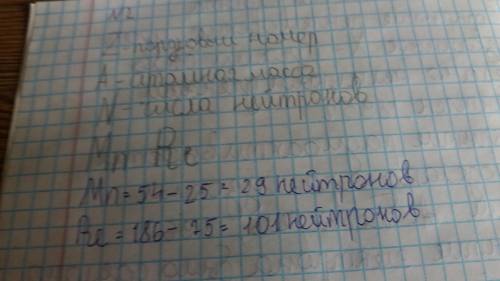 N2
Z-порядковый номер
A-атомная масса
N-числа нейтронов
Mn Re
Mn=54-25=29 нейтронов
Re=186-75=101 нейтронов